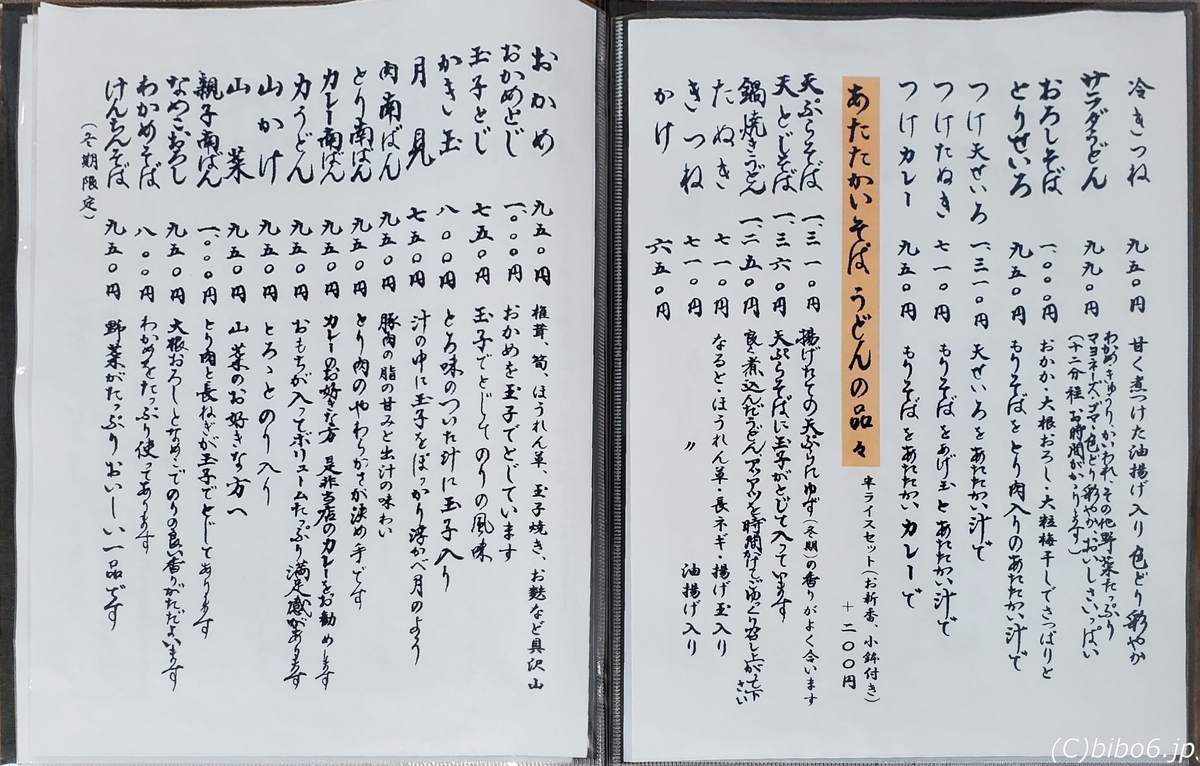 冷きつね 九五〇円 甘く煮つけた油揚げ入り 色どり彩やか
サラダうどん 九九〇円 わかめ、きゅうり、かいわれ、その他野菜たっぷり
マヨネーズ、ツナ、色どり彩やか、おいしさいっぱい
(十二分程、お時間がかかります)
おろしそば 一、〇〇〇円 おかか、大根おろし、大粒梅干しでさっぱりと
とりせいろ 九五〇円 もりそばをとり肉入りのあたたかい汁で
つけ天せいろ 一、三一〇円 天せいろをあたたかい汁で
つけたぬき 七一〇円 もりそばをあげ玉とあたたかい汁で
つけカレー 九五〇円 もりそばをあたたかいカレーで
あたたかいそば うどんの品々
半ライスセット(お新香、小鉢付き)
+二〇〇円
天ぷらそば 一、三一〇円 揚げたての天ぷらにゆず(冬期)の香りがよく合います
天とじそば 一、三六〇円 天ぷらそばに玉子がとじて入っています
鍋焼きうどん 一、二五〇円 良く煮込んだうどん、アツアツを時間かけてごゆっくり召し上がって下さい
たぬき 七一〇円 なると・ほうれん草・長ネギ・揚げ玉入り
きつね 七一〇円 〃 油揚げ入り
かけ 六五〇円
おかめ 九五〇円 椎茸、筍、ほうれん草、玉子焼き、お麩など具沢山
おかめとじ 一、〇〇〇円 おかめを玉子でとじています
玉子とじ 七五〇円 玉子でとじてのりの風味
かきい玉 八〇〇円 とろ味のついた汁に玉子入り
月見 七五〇円 汁の中に玉子をぽっかり浮かべ月のよう
肉南ばん 九五〇円 豚肉の脂の甘みと出汁の味わい
とり南ばん 九五〇円 とり肉のやわらかさが決め手です
カレー南ばん 九五〇円 カレーのお好きな方 是非当店のカレーをお勧めします
力うどん 九五〇円 おもちが入ってボリュームたっぷり満足感があります
山かけ 九五〇円 とろゝとのり入り
山菜 九五〇円 山菜のお好きな方へ
親子南ばん 一、〇〇〇円 とり肉と長ねぎが玉子でとじてあります
なめこおろし 九五〇円 大根おろしとなめこでのりの良い香りがただよいます
わかめそば 八〇〇円 わかめをたっぷり使ってあります
けんちんそば 九五〇円 野菜がたっぷりおいしい一品です
(冬期限定)
(C)bibo6.jp